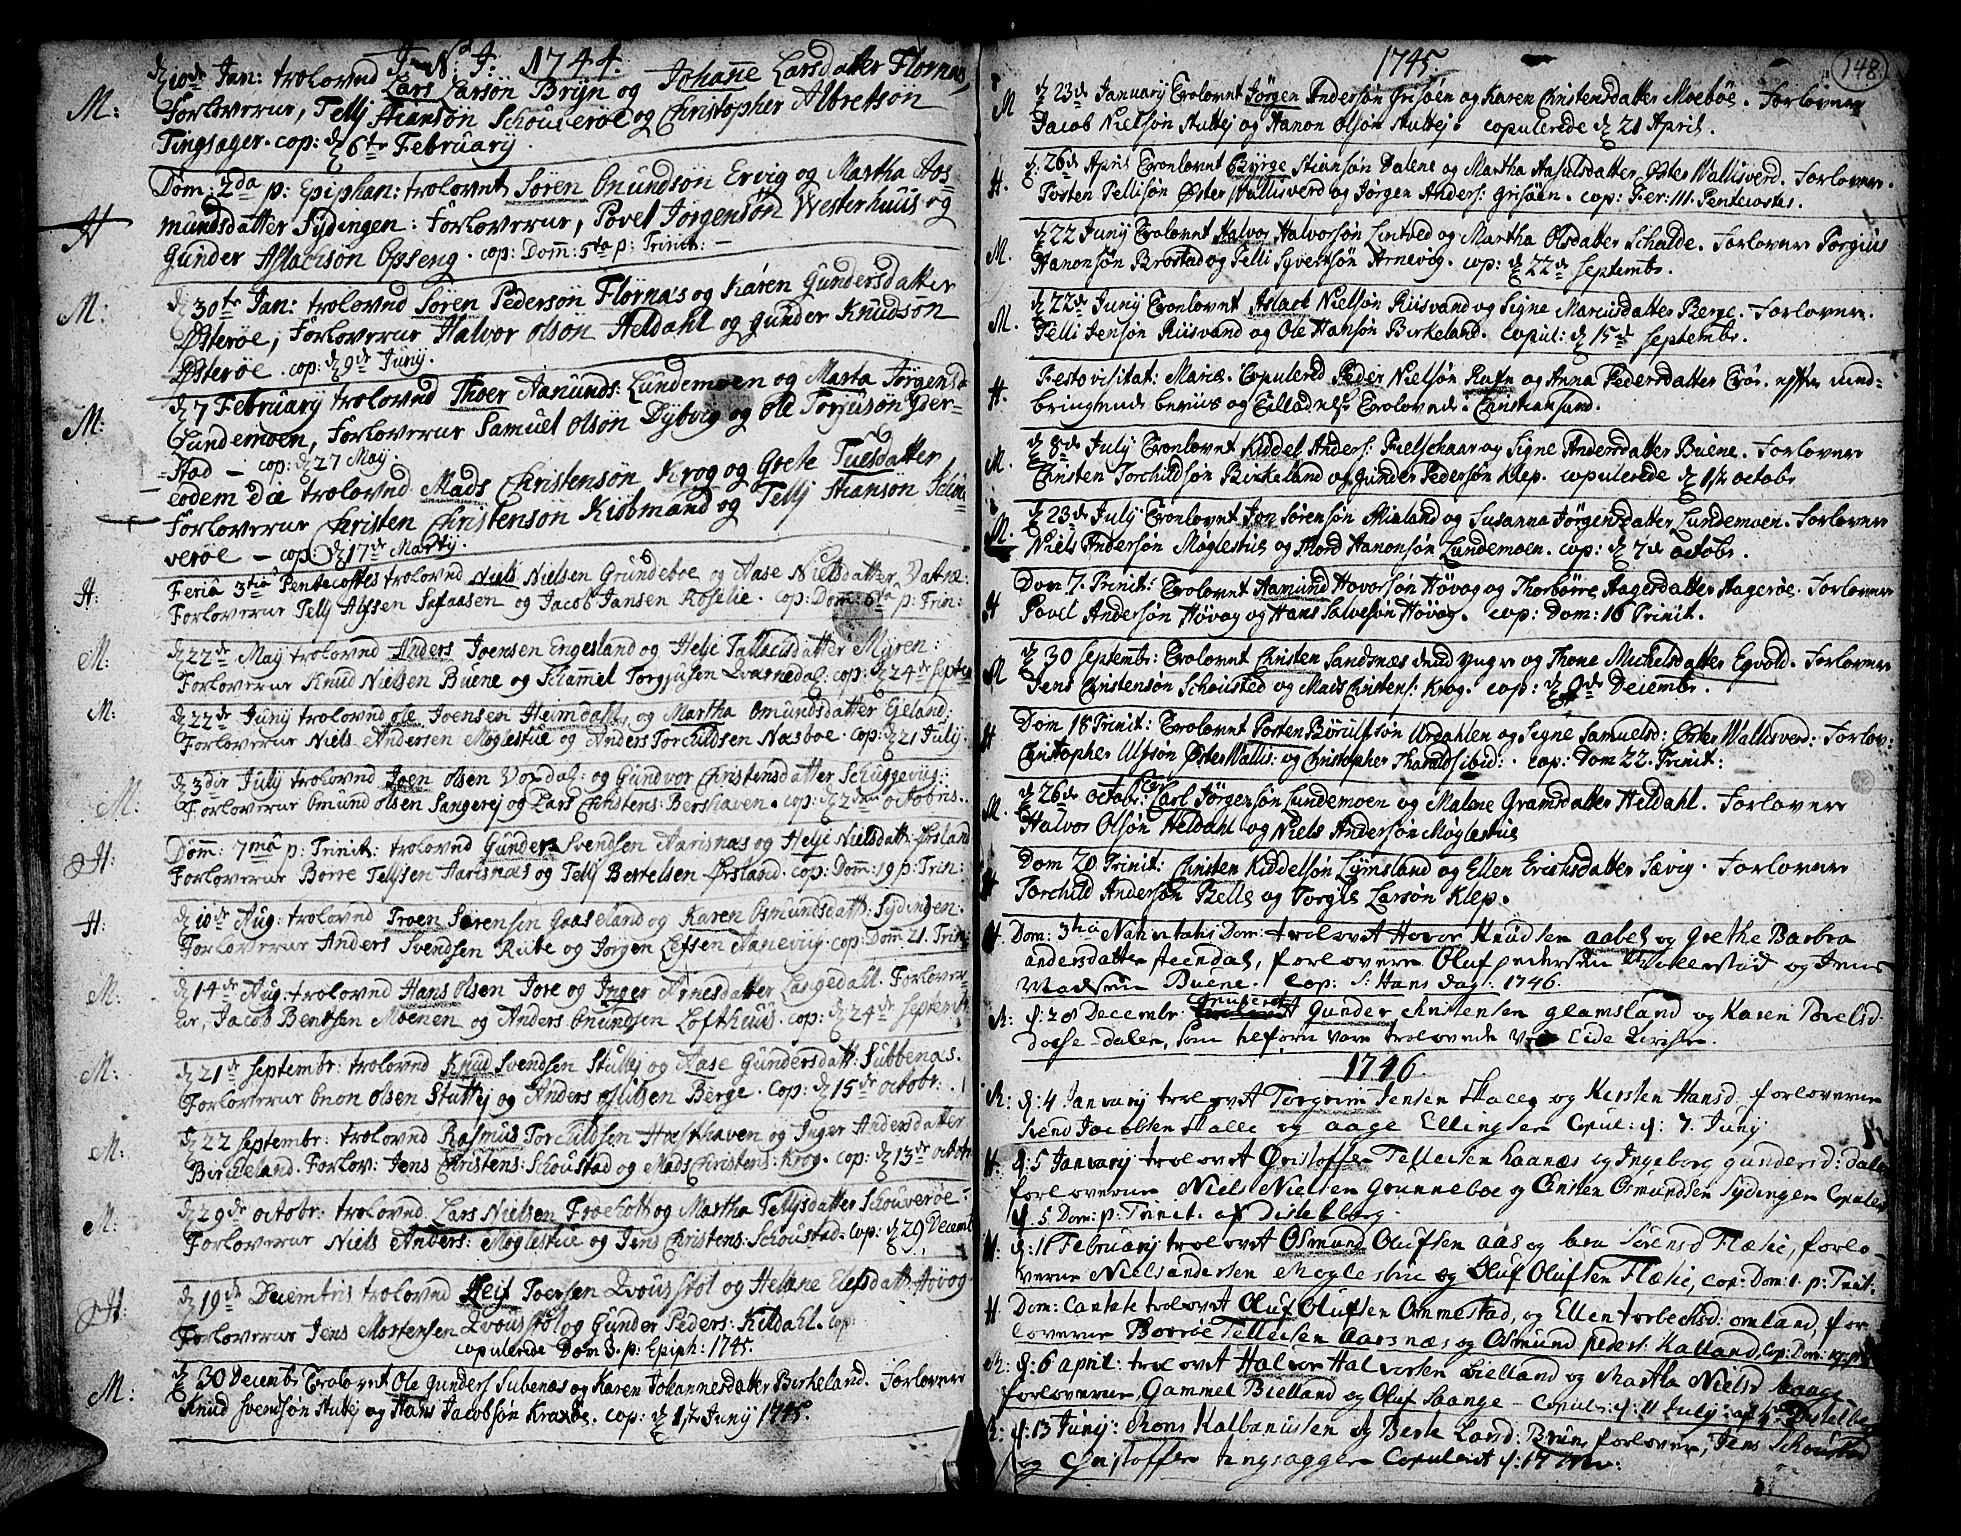 J. N. J. 1744.
M: d 10de Jan: trolovnd Lars Larsön Bryn og Johanne Larsdatter Flornæs,
Forloverne, Tellj Stiansön Schouverøe og Christopher Albretsön
Tingsager. cop: d 6te February.
Dom: 2da p: Epiphan: trolovnt Sören Onundsön Ervig og Martha Aas-
H mundsdatter Sydingen: Forloverne, Povel Jörgensön Westerhuus og
Gunder Aslachsön Opseng. cop: Dom: 5ta p: Trinit: —
M: d 30te Jan: trolovnd Sören Pedersön Flornæs og Karen Gundersdatter
Østerøe, Forloverne Halvor Olsön Heldahl og Gunder Knudsön
Østerøe. cop: d 9de Junij.
M: d 7 February trolovnd Thoer Aanunds: Lundemoen og Marta Jörgensd:
Lundemoen, Forloverne Samuel Olsön Dybvig og Ole Torjusön Yder-
stad — cop: d 27 Maij.
eodem die trolovnd Mads Christensön Krog og Grete Tuesdatter
Forloverne Christen Christensön Kiøbmand og Tellj Stianson Schou-
verøe — cop: d 17de Martij.
H: Feria 3tia Pentecostes trolovnd Niels Nielsen Grundeboe og Aase Nielsdatter Vatne:
Forloverne Tellj Alfsen Safaasen og Jacob Jansen Roselie. cop: Dom: 6ta p: Trin:
M: d 22de Maij trolovnd Anders Joensen Engesland og Helje Tallacsdatter Myren:
Forloverne Knud Nielsen Buene og Schammel Torgjusen Qvarnedal. cop: d 24de Septbr
M: d 22de Junij trolovnd Ole Joensen Heimdahl og Martha Omundsdatter Eieland:
Forloverne Niels Andersen Møglestue og Anders Torchildsen Næsboe. cop: d 21 Julij.
M: d 3die Julij trolovnd Joen Olsen Voxdal: og Gundvor Christensdatter Schuggevig:
Forloverne Omund Olsen Sangerej og Lars Christens: Bershaven. cop: d 2den Octobris.
H: Dom: 7ma p: Trinit: trolovnd Gunder Svendsen Aarisnæs og Helje Nielsdatt: Ørsland
Forloverne Børre Tellsen Aarisnæs og Tellj Bertelsen Ørsland. cop: Dom: 19 p: Trin:
H: d 10de Aug: trolovnd Troen Sörensen Gaaseland og Karen Osmundsdatt: Sydingen:
Forloverne Anders Svendsen Rute og Jörgen Lefsen Aanevig. cop: Dom 21. Trin:
M: d 14de Aug: trolovnd Hans Olsen Jore og Inger Arnesdatter Langedahl. Forlover-
ne, Jacob Bentsen Moenen og Anders Onundsen Lofthuus. cop: d 24de Septembr
M: d 21de Septembr: trolovnd Knud Svendsen Stuttej og Aase Gundersdatt: Subbenæs.
Forloverne Onon Olsen Stuttej og Anders Nilsen Berge. cop: d 15de Octobr:
M: d 22 Septembr: trolovnd Rasmus Torchildsen Hæsthaven og Inger Andersdatter
Berckeland. Forlov: Jens Christens: Schoustad og Mads Christens: Krog. cop: d 13de Octobr
M: d 29de Octobr: trolovnd Lars Nielsen Froeholt og Martha Tellysdatter Schouverøe:
Forloverne Niels Anders: Møglestue og Jens Christens: Schoustad. cop: d 29 Decemb:
H: d 19de Decembris trolovnd Leif Toersen Qvousstol og Helene Elefsdatt: Høvog
Forloverne Jens Mortensen Qvousstol og Gunder Peders: Kildahl. cop:
copulerede Dom 3. p: Epiph: 1745.
M: d 30 Decembr Trolovet Ole Gunders Subenæs og Karen Johannesdatter Birkeland. Forlovere
Knud Svendsön Stutej og Hans Jacobsön Kraxøe. cop: d 17 Junij 1745.
148.
1745
M d 23de January Trolovnt Jörgen Andersön Grisöen og Karen Christensdatter Moeböe. Forlovere
Jacob Nielsön Stuttej og Hanon Olsön Stuttej. copulerede d 21 April.
H. d 26de April Tronlovnt Byrge Stiensön Dalene og Martha Aasulsdatter Øster Wallisverd. Forlovere.
Tosten Tellisön Øster Wallisverd og Jörgen Anders: Grisöen. cop: Fer: III. Pentecostes.
M. d 22 Junij Trolovnt Halvor Halvorsön Lintved og Martha Olsdatter Schalde. Forlovere Torgius
Hanonsön Brostad og Telli Syvertsön Arnevig. cop: d 22de Septembr.
M. d 22de Junij Tronlovnt Aslack Nielsön Riisvand og Signe Marcusdatter Berge. Forlovere.
Telli Jensön Riisvand og Ole Hansön Birkeland. Copul: d 15de Septembr.
H. Festo Visitat: Mariæ. Copulered Peder Nielsön Rafn og Anna Pedersdatter Troe. efter ind-
bringende beviis og Tilladelse Trolovede. Christiansand.
M. d 8de July Tronlovnt Kiddel Anders: Fielschaar og Signe Andersdatter Buene. Forlovere
Christen Torchildsön Birkeland og Gunder Pedersön Klep. copulerede d 1ste Octobr
M. d 23de July Tronlovnt Jon Sörensön Mieland og Susanna Jörgensdatter Lundemoen. Forlovere
Niels Andersön Møglestue og Thord Hanonsön Lundemoen. cop: d 7de Octobr.
H Dom 7. Trinit: Trolovnt Aamund Hovorsön Høvog og Thorböre Aagersdatter Aagerøe. Forlovere
Povel Andersön Høvog og Hans Salvesön Høvog. cop: Dom: 16 Trinit.
M d 30 Septembr: Trolovnt Christen Sandsnæs Enud Yngre og Thone Michelsdatter Egvold. Forlovere
Jens Christensön Schousted og Mads Christens: Krog. cop: d 9de Decembr.
H Dom 18 Trinit: Trolovnt Tosten Börulfsön Urdahlen og Signe Samuelsd: Øster Wallisverd: Forlov:
Christopher Ulfsön Øster Wallis: og Christopher Tharalds: ibid: . cop: Dom 22. Trinit:
M. d 26de Octobr: Tro: Carl Jörgensön Lundemoen og Malene Gramsdatter Heldahl. Forlovere
Halvor Olsön Heldahl og Niels Andersön Møglestue
H Dom 20 Trinit: Christen Kiddelsön Lymsland og Ellen Erichsdatter Sævig. Forlovere
Torchild Andersön Telle og Torgils Larsön Klep.
H. Dom: 3tia Nativitatis Dom: trolovet Hovor Knudsen Aabel og Grethe Barbra
Andersdatter Steendal, forlovere Oluf Pedersen Wallestad og Jens
Madsen Buene. Cop: S: Hans dag: 1746.
R: d: 28 Decembr: Copuleret Gunder Christensen Glamsland og Karen Povelsd:
Dosse-Dalen, som tilforn vare trolovede ved Eide Kirche.
1746
R: d: 4 January trolovet Torgrim Jensen Skalle og Kirsten Hansd: forloverne
Svend Jacobsen Skalle og Aage Ellingsen Copul: d: 7. Junij
H. d: 5 January trolovet Christoffer Tellefsen Kaanæs og Ingeborg Gundersd: Dalen
forloverne Niels Nielsen Grunneboe og Christen Osmundsen Sydingen Copuler
d 5 Dom: p: Trinit. af Distelberg.
H. d: 11 February trolovet Osmund Olufsen Aas og Bra Sörensd Flæsie, forlo-
verne Niels Andersen Møglestue og Oluf Olufsen Flæsie, cop: Dom: 1. p: Trinit:
H Dom: Cantate trolovet Oluf Olufsen Ommestad, og Ellen Torbechsd: Omland, for-
loverne Borröe Tellefsen Aarsnæs og Osmund Peders: Kalland, Cop: Dom: 19. p:
R: d: 6 April: trolovet Halvor Halvorsen Bielland og Martha Nielsd Haage
forloverne Gammel Bielland og Oluf Haange — Copul: d: 11 Julij: af Hr: Distelberg
R: d: 13 Junij: Mons Kalbanussen og Berte Land: Bruns forlovere, Jens Schousted
og Christoffer Tingsager Copuleret d: 17 Nov: